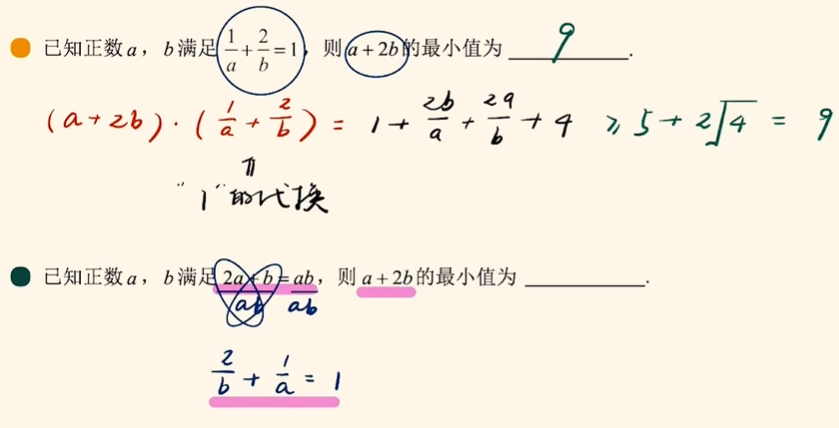 已知正数a，b满足1/a+2/b=1，则a+2b的最小值为 9 .
(a+2b)·(1/a+2/b)=1+2b/a+2a/b+4 ≥5+2√4=9
"1"的代换
已知正数a，b满足2a+b=ab，则a+2b的最小值为______.
ab ab
2/b+1/a=1